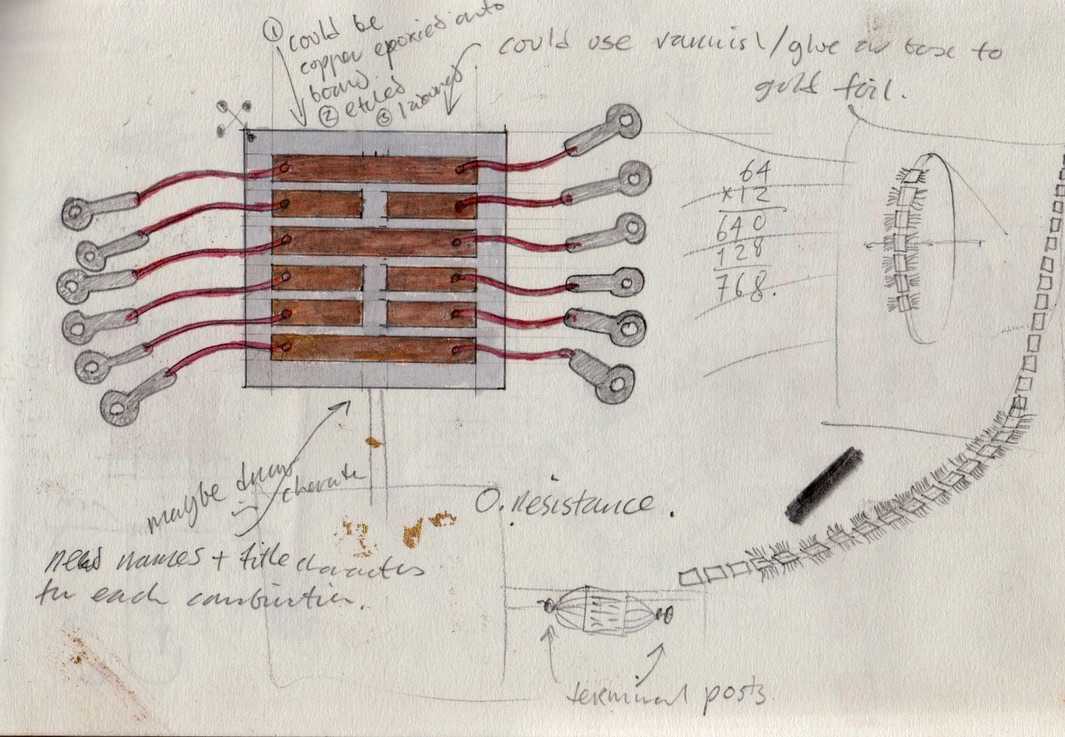 ① could be
copper epoxied onto
board
② etched
③
could use varnish/glue as base to
gold foil.
64
×12
640
128
768.
maybe draw
need names + title character
for each combination.
O. resistance.
terminal posts.